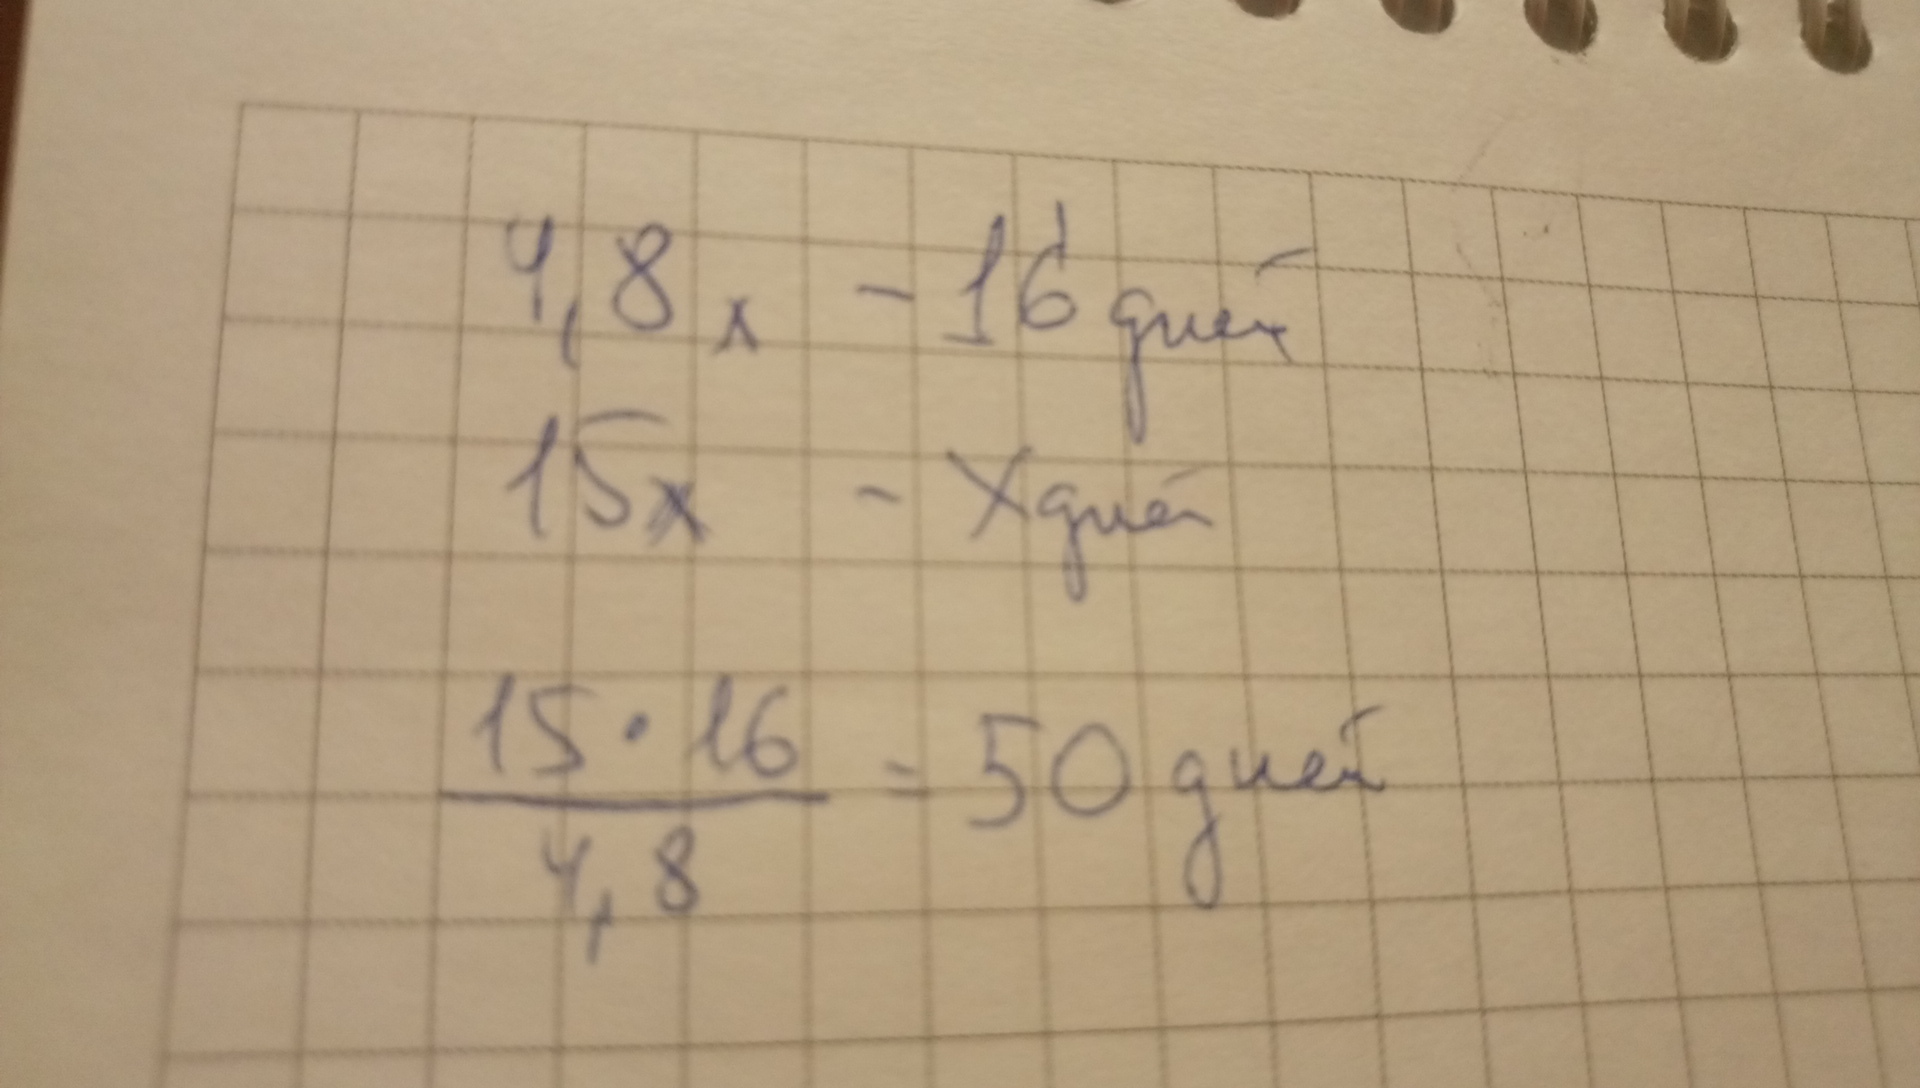 4,8 х - 16 дней
15х - Х дней
15 · 16
4,8
= 50 дней